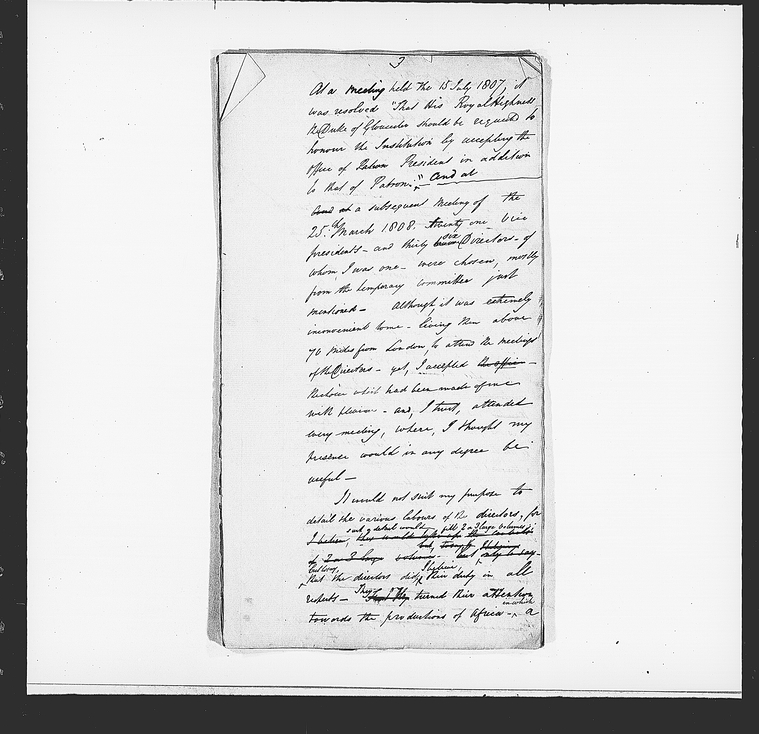 3
At a meeting held the 15 July 1807, it
was resolved "That His Royal Highness
the Duke of Gloucester should be requested to
honour the Institution by accepting the
office of Patron President in addition
to that of Patron." and at
and at a subsequent meeting of the
25th March 1808. twenty one Vice
presidents - and thirty six Directors - of
whom I was one - were chosen, mostly
from the temporary committee just
mentioned - Although, it was extremely
inconvenient to me - living then above
70 miles from London, to attend the meetings
of the Directors - yet, I accepted the office -
the choice which had been made of me
with pleasure - and, I trust, attended
every meeting, where, I thought my
presence would in any degree be
useful -
It would not suit my purpose to
detail the various labours of the directors, for
such a detail would fill 2 or 3 large volumes
I believe, this would take up the
of 2 or 3 large volumes - but only to say
I believe,
that the directors did their duty in all
respects - They turned their attention
in which
towards the productions of Africa - a